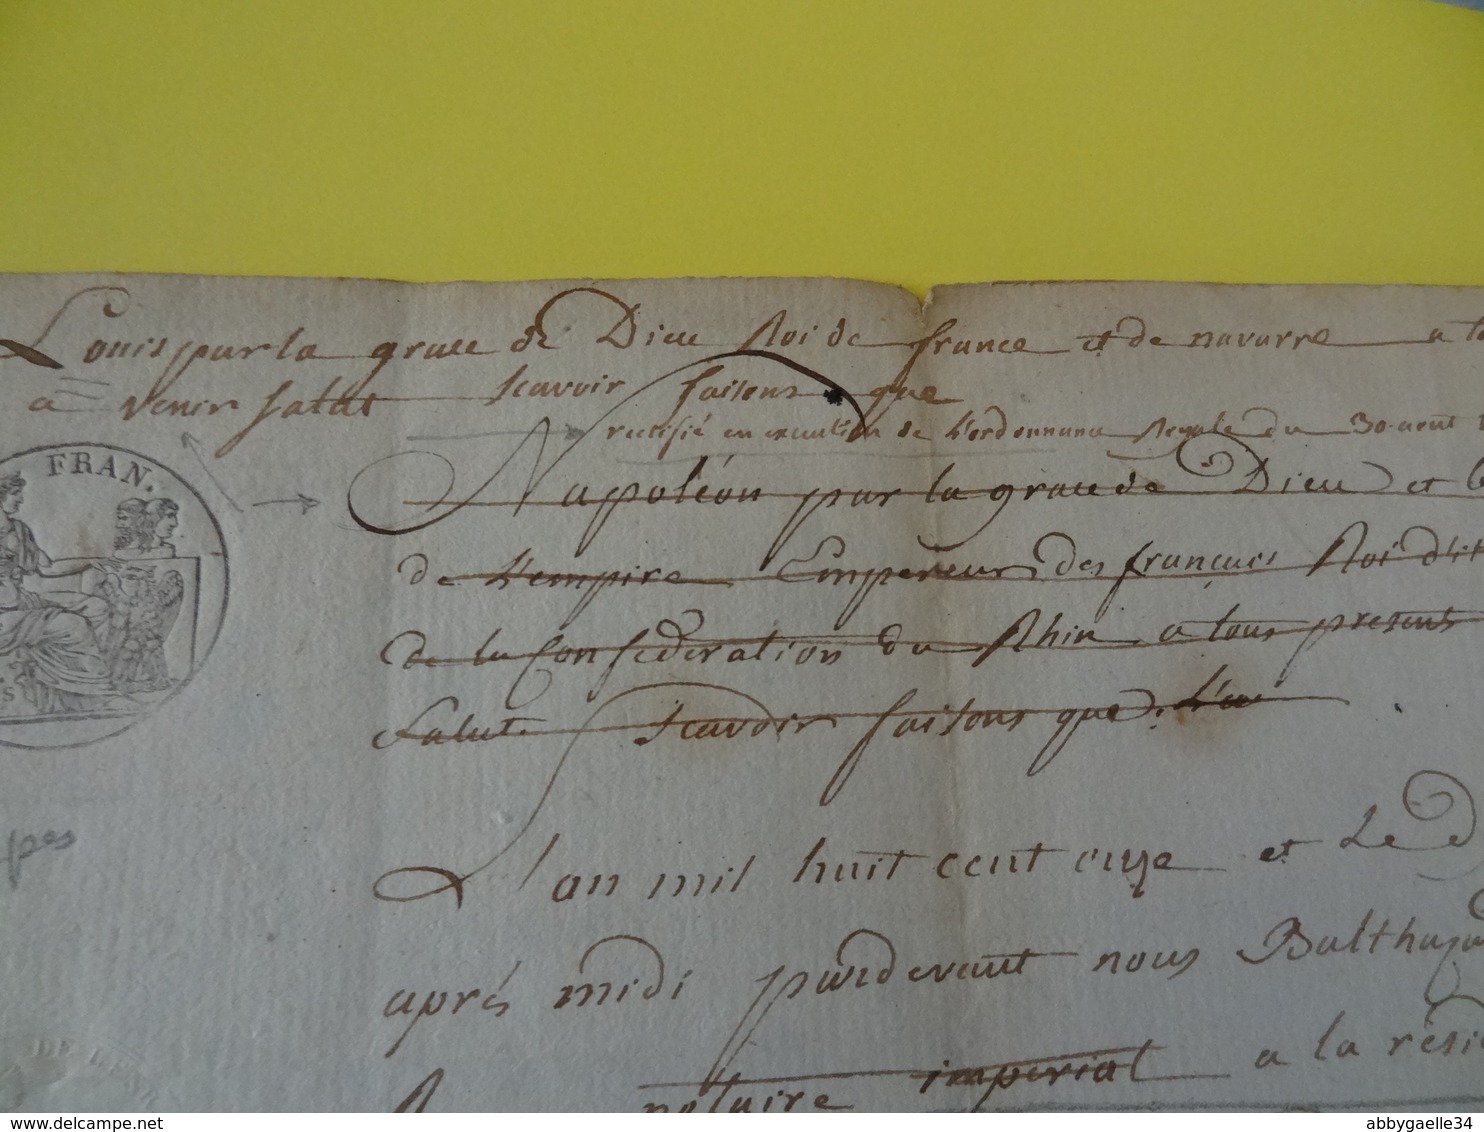 Louis par la grace de Dieu Roi de france et de navarre a to
a venir salut scavoir faisons que
rectifié en execution de L'ordonnance Royale du 30 aout
FRAN.
Napoléon par la grace de Dieu et le
de L'empire Empereur des français Roi d'it
de la Confederation du Rhin a tous presents
Salut scavoir faisons que. L'an
L'an mil huit cent onze et Le d
après midi pardevant nous Balthaza
DE L'EN
notaire imperial a la rési
abbygaelle34